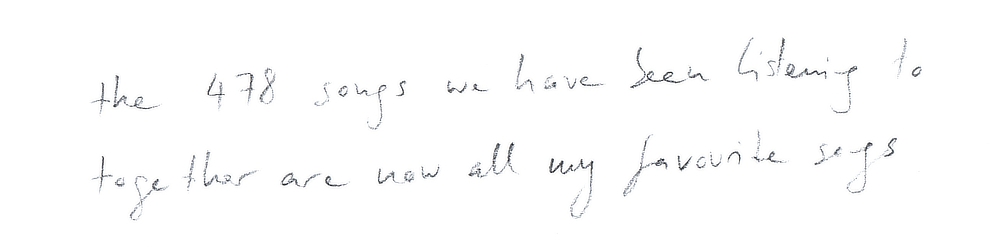 the 478 songs we have been listening to
together are now all my favourite songs